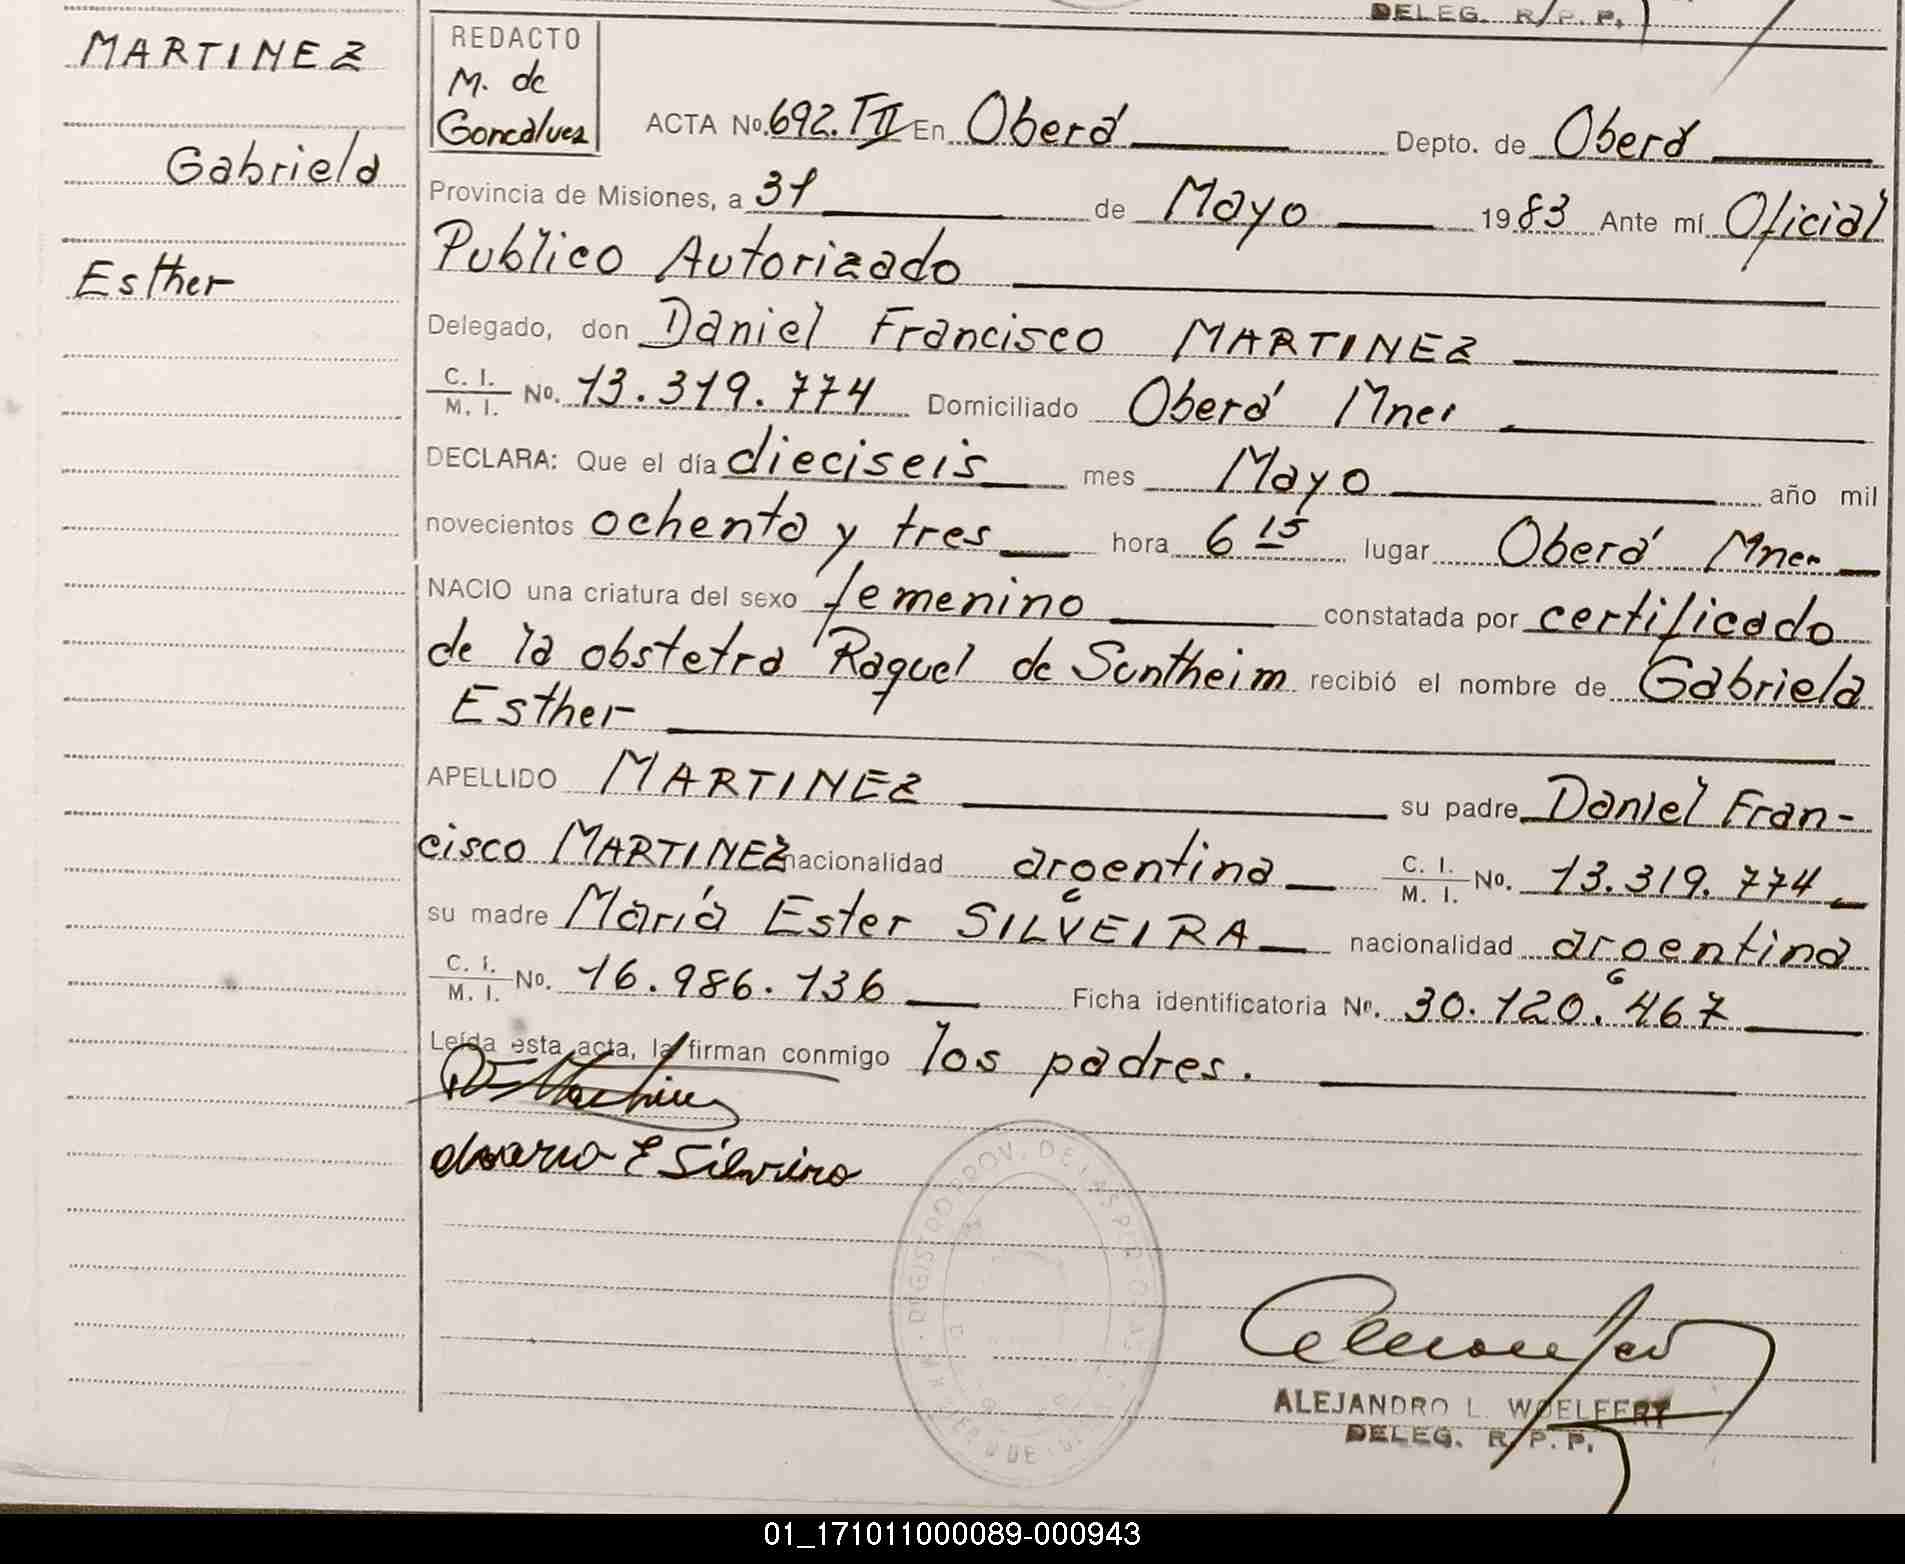 DELEG. R. P. P.
MARTINEZ
Gabriela
Esther
REDACTO
M. de
Goncalvez
ACTA No. 692. TII En Oberá Depto. de Oberá
Provincia de Misiones, a 31 de Mayo 1983 Ante mí Oficial
Publico Autorizado
Delegado, don Daniel Francisco MARTINEZ
C. I. / M. I. No. 13.319.774 Domiciliado Oberá Mnes
DECLARA: Que el día dieciseis mes Mayo año mil
novecientos ochenta y tres hora 6 15 lugar Oberá Mnes
NACIO una criatura del sexo femenino constatada por certificado
de la obstetra Raquel de Suntheim recibió el nombre de Gabriela
Esther
APELLIDO MARTINEZ su padre Daniel Fran-
cisco MARTINEZ nacionalidad argentina C. I. / M. I. No. 13.319.774
su madre María Ester SILVEIRA nacionalidad argentina
C. I. / M. I. No. 16.986.136 Ficha identificatoria No. 30.120.467
Leída esta acta, la firman conmigo los padres.
Maria E Silveira
REGISTRO PROV. DE LAS PERSONAS
ALEJANDRO L. WOELFERT
DELEG. R. P. P.
01_171011000089-000943